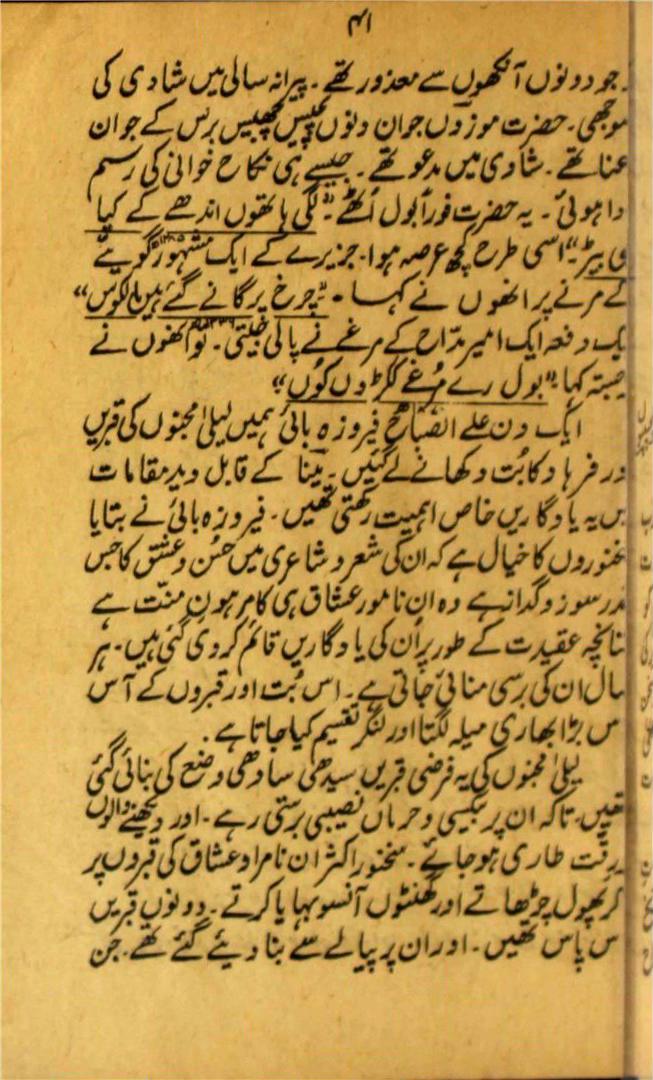 ۴۱
جو دونوں آنکھوں سے معذور تھے۔ پیرانہ سالی میں شادی کی
سوجھی۔ حضرت موزوں جوان دنوں پچیس چھبیس برس کے جوان
عنا تھے۔ شادی میں مدعو تھے۔ جیسے ہی نکاح خوانی کی رسم
دا ہوئی۔ یہ حضرت فوراً بول اُٹھے۔ "لگی ہاتھوں اندھے کے کیا
بٹیر" اسی طرح کچھ عرصہ ہوا۔ جزیرے کے ایک مشہور گویئے
کے مرنے پر انھوں نے کہا۔ "چرخ پر گانے گئے ہیں مالکوس"
یک دفعہ ایک امیر مدّاح کے مرغے نے پالی جیتی۔ تو انھوں نے
جستہ کہا "بول رے مُرغے ککڑوں کوں"
ایک دن علے الصّباح فیروزہ بائی ہمیں لیلیٰ مجنوں کی قبریں
ور فرہاد کا بُت دکھانے لے گئیں۔ مینا کے قابل دید مقامات
یں یہ یادگاریں خاص اہمیت رکھتی تھیں۔ فیروزہ بائی نے بتایا
خنوروں کا خیال ہے کہ ان کی شعر و شاعری میں حسُن و عشق کا جس
قدر سوز و گداز ہے وہ ان نامور عشاق ہی کا مرہونِ منّت ہے
نانچہ عقیدت کے طور پر اُن کی یادگاریں قائم کر دی گئی ہیں۔ ہر
سال ان کی برسی منائی جاتی ہے۔ اس بُت اور قبروں کے آس
س بڑا بھاری میلہ لگتا اور لنگر تقسیم کیا جاتا ہے۔
لیلیٰ مجنوں کی یہ فرضی قبریں سیدھی سادھی وضع کی بنائی گئی
تھیں۔ تاکہ ان پر بیکسی و حرماں نصیبی برستی رہے۔ اور دیکھنے والوں
رقت طاری ہو جائے۔ سخنور اکثر ان نامراد عشاق کی قبروں پر
کر پھول چڑھاتے اور گھنٹوں آنسو بہایا کرتے۔ دونوں قبریں
س پاس تھیں۔ اور ان پر پیالے سے بنا دیئے گئے تھے۔ جن